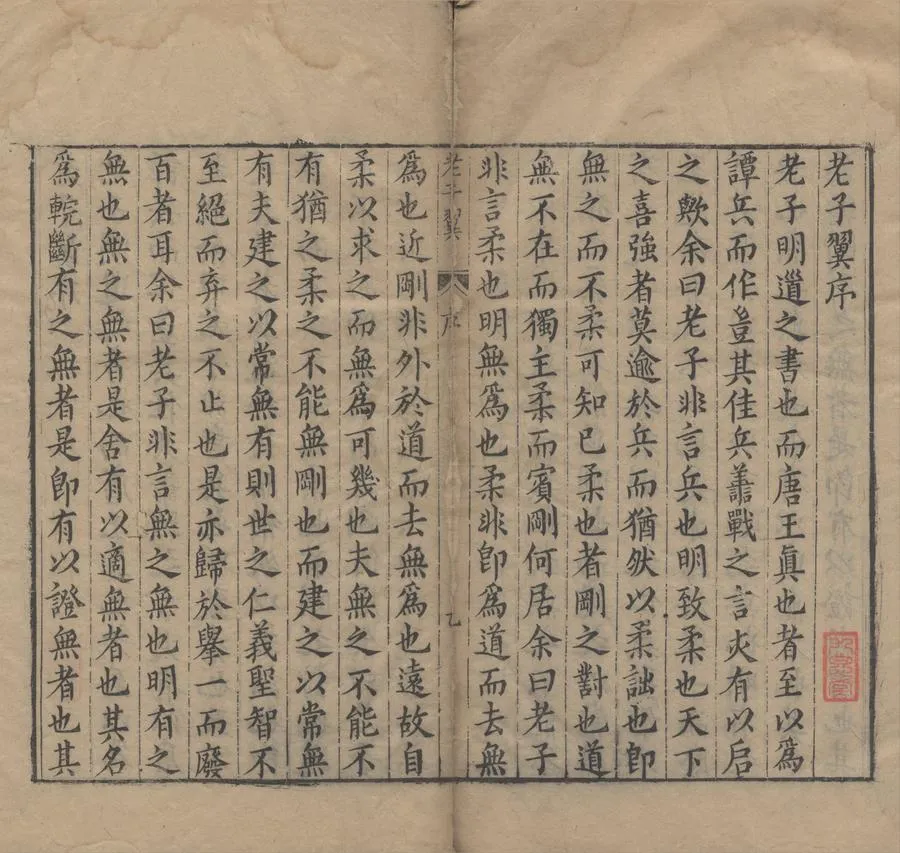 老子翼序
老子明道之書也而唐王真也者至以為
譚兵而作豈其佳兵善戰之言亦有以啟
之歟余曰老子非言兵也明致柔也天下
之喜強者莫逾於兵而猶然以柔詘也即
無之而不柔可知已柔也者剛之對也道
無不在而獨主柔而賓剛何居余曰老子
非言柔也明無為也柔非即為道而去無
老子翼 序 乙
為也近剛非外於道而去無為也遠故自
柔以求之而無為可幾也夫無之不能不
有猶之柔之不能無剛也而建之以常無
有夫建之以常無有則世之仁義聖智不
至絕而弃之不止也是亦歸於舉一而廢
百者耳余曰老子非言無之無也明有之
無也無之無者是舍有以適無者也其名
為輐斷有之無者是即有以證無者也其